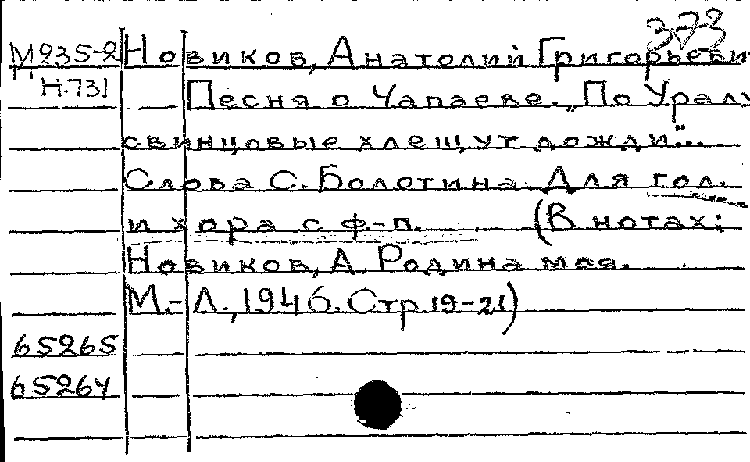 373
М235-2 Новиков, Анатолий Григорьеви
Н.731 Песня о Чапаеве. „По Уралу
свинцовые хлещут дожди"...
Слова С. Болотина. Для гол.
и хора с ф.-п. (В нотах:
Новиков, А. Родина моя.
М.-Л., 1946. Стр. 19-21)
65265
65264